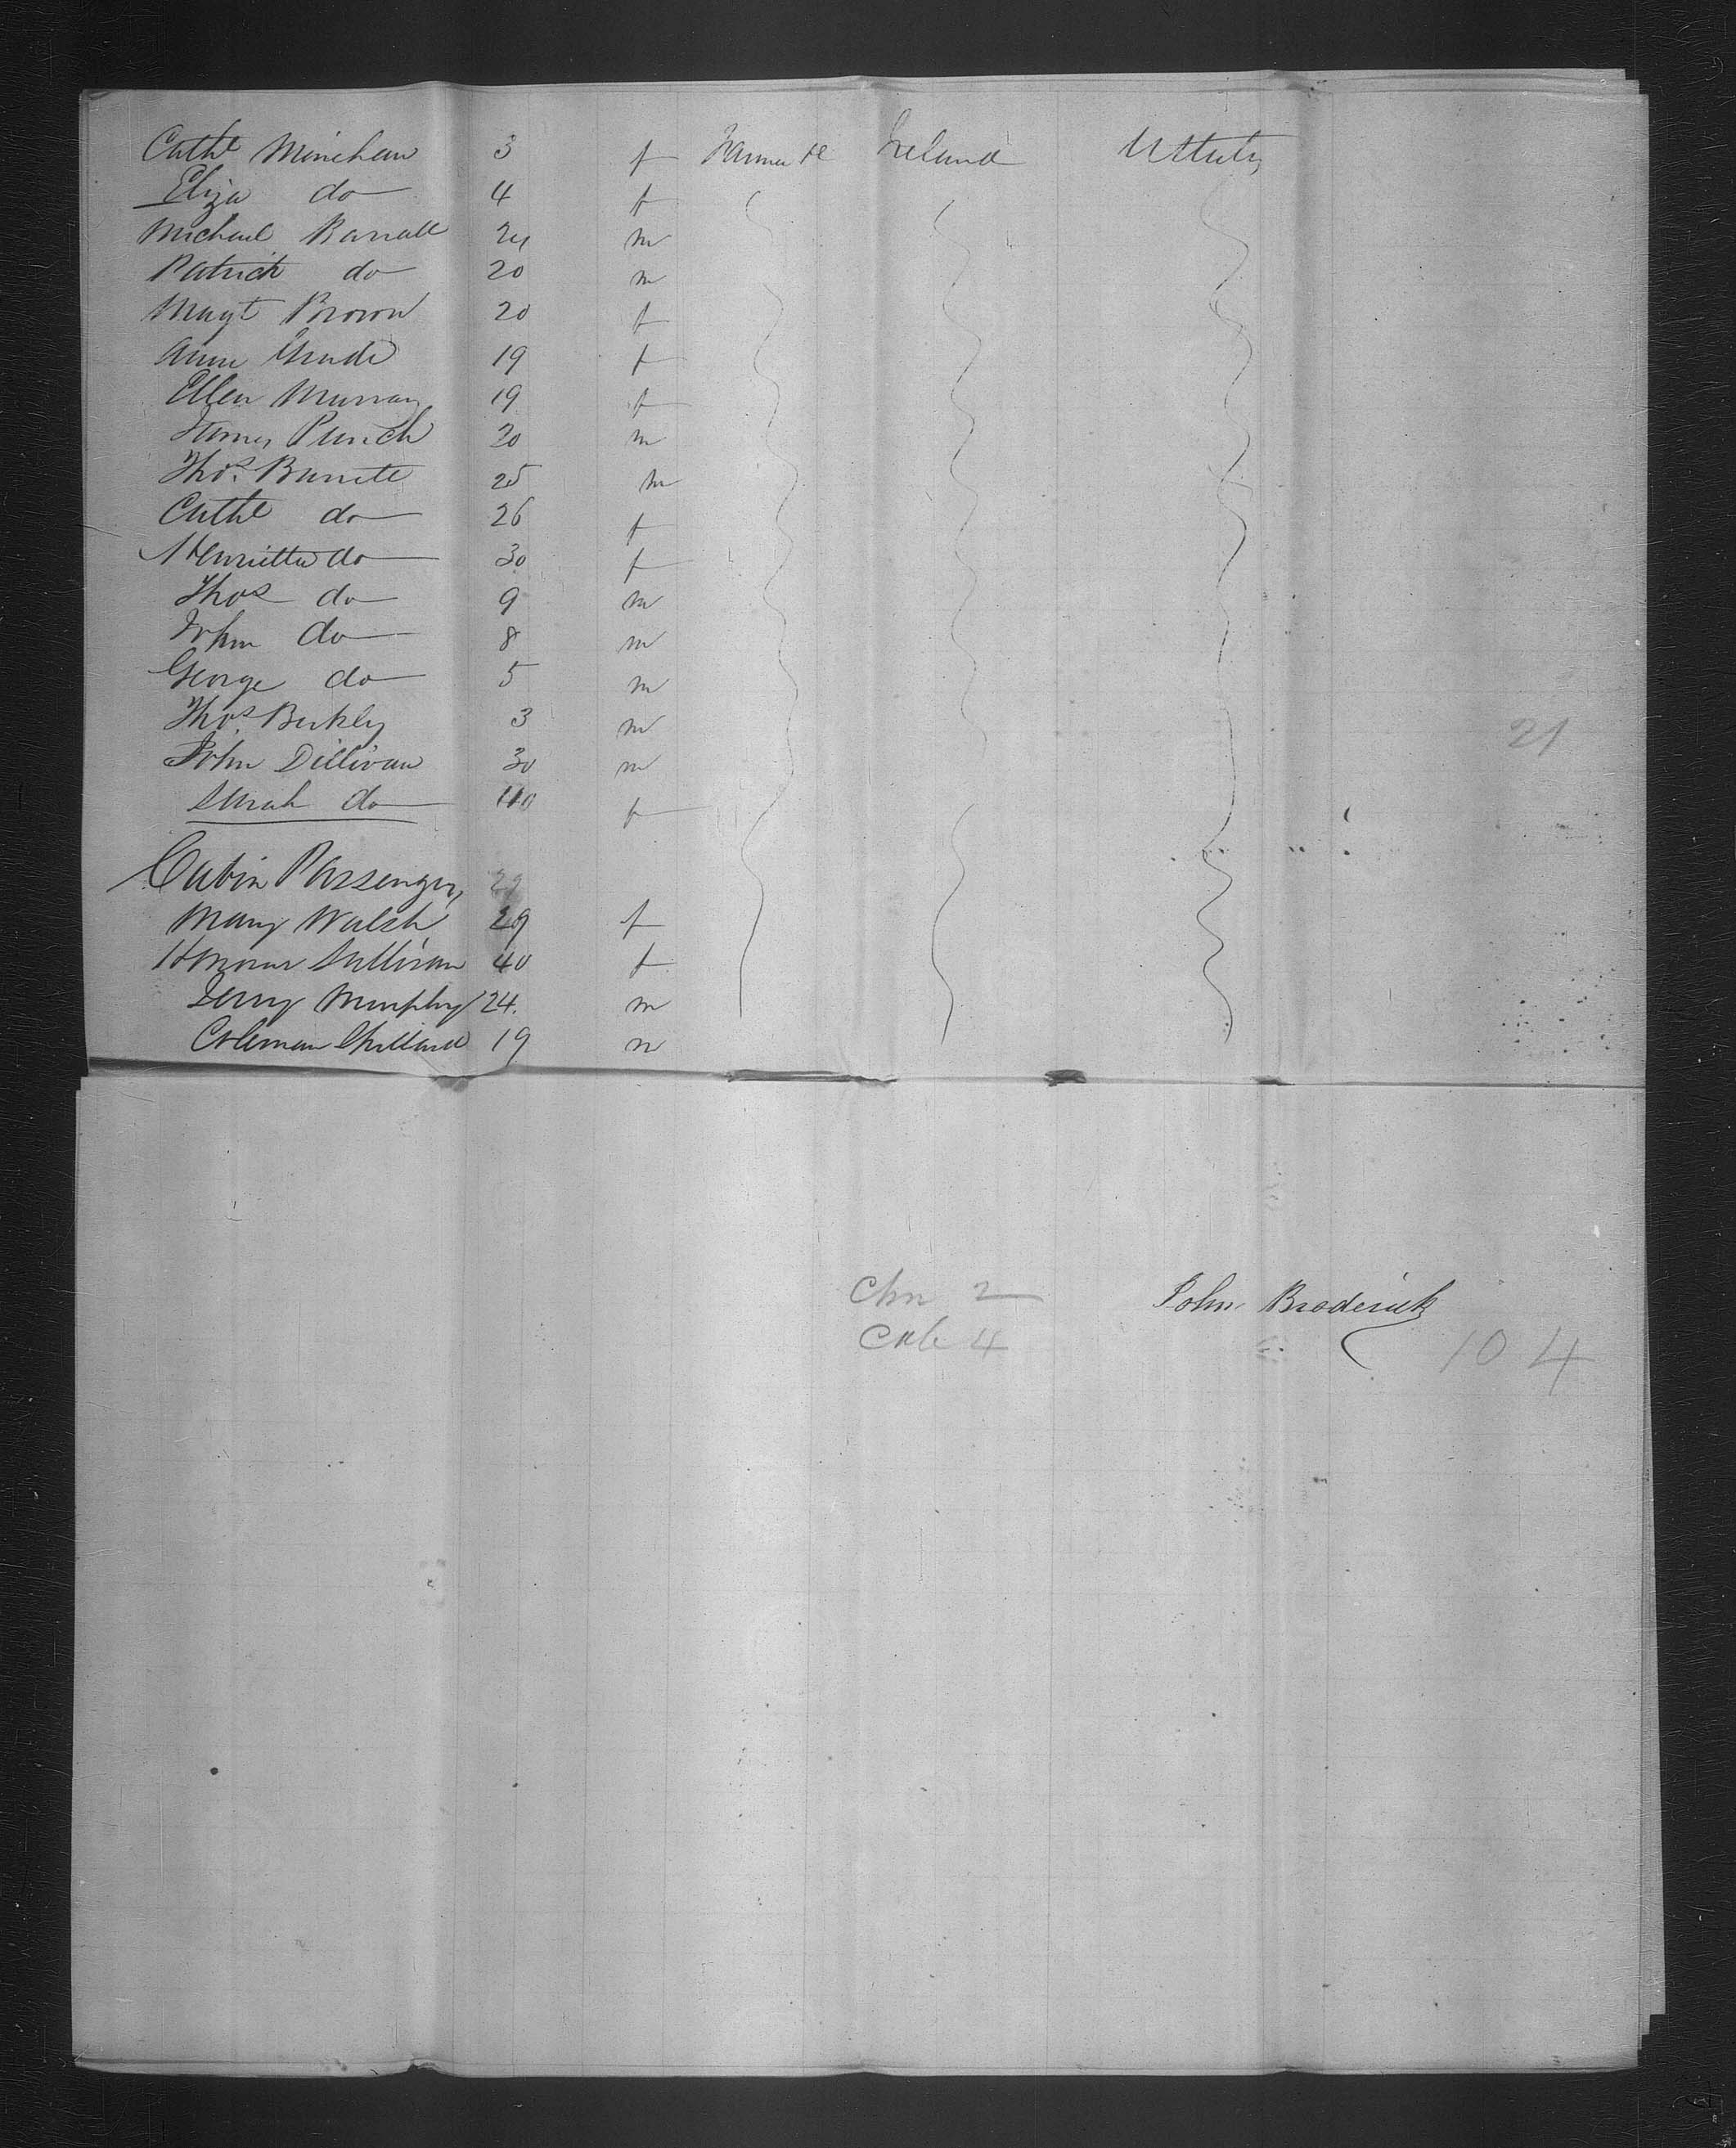 Cathe Minehan 3 f Farmer &c Ireland U States
Eliza do 4 f
Michael Barratt 24 m
Patrick do 20 m
Magt Brown 20 f
Anne Grade 19 f
Ellen Murray 19 f
James Punch 20 m
Thos. Burrett 25 m
Cathe do 26 f
Henrietta do 30 f
Thos do 9 m
John do 8 m
George do 5 m
Thos. Berkly 3 m
John Dillivan 30 m
Sarah do 40 f
21
Cabin Passengers 29
Mary Walsh 29 f
Honora Sullivan 40 f
Jerry Murphy 24. m
Coleman 19 m
Chn 2
John Broderick
Cab 4
104